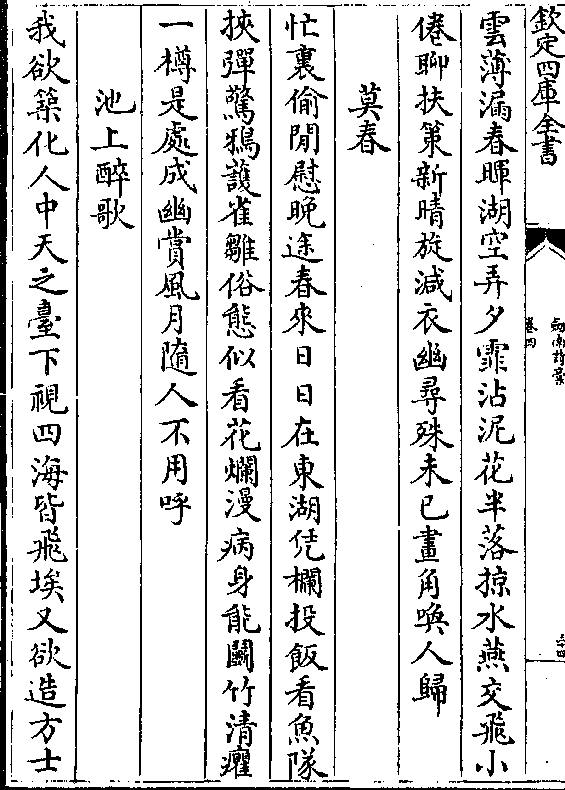 欽定四庫全書
劍南詩藁
卷四
三十四
雲薄漏春暉湖空弄夕霏沾泥花半落掠水燕交飛小
倦聊扶策新晴旋減衣幽尋殊未已畫角喚人歸
莫春
忙裏偷閒慰晚途春來日日在東湖凭欄投飯看魚隊
挾彈驚鴉護雀雛俗態似看花爛漫病身能鬬竹清癯
一樽是處成幽賞風月隨人不用呼
池上醉歌
我欲築化人中天之臺下視四海皆飛埃又欲造方士